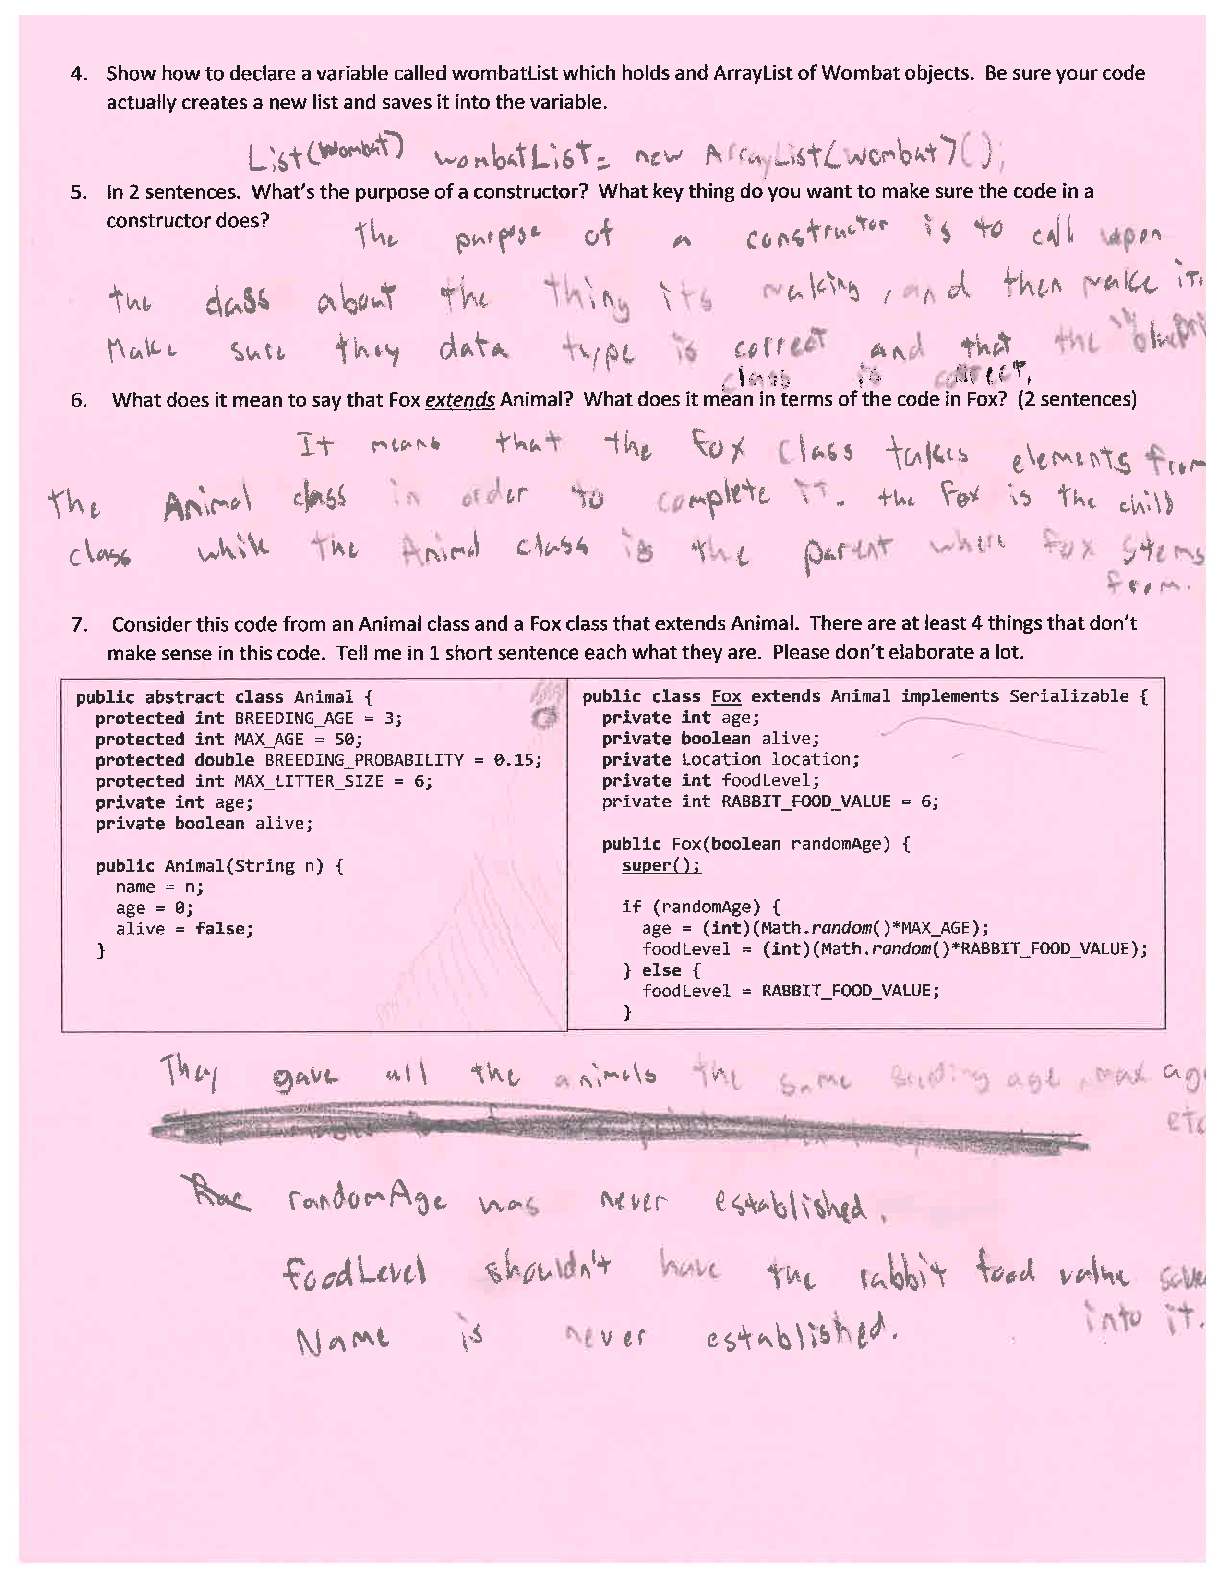 4. Show how to declare a variable called wombatList which holds and ArrayList of Wombat objects. Be sure your code
actually creates a new list and saves it into the variable.
List(Wombat) wombatList = new ArrayList(Wombat)();
5. In 2 sentences. What's the purpose of a constructor? What key thing do you want to make sure the code in a
constructor does?
The purpose of a constructor is to call upon
the class about the thing its making, and then make it.
Make sure they data type is correct and that the
class is correct.
6. What does it mean to say that Fox extends Animal? What does it mean in terms of the code in Fox? (2 sentences)
It means that the Fox class takes elements from
the Animal class in order to complete it. the Fox is the child
class while the Animal class is the parent where Fox stems
from.
7. Consider this code from an Animal class and a Fox class that extends Animal. There are at least 4 things that don't
make sense in this code. Tell me in 1 short sentence each what they are. Please don't elaborate a lot.
public abstract class Animal {
protected int BREEDING_AGE = 3;
protected int MAX_AGE = 50;
protected double BREEDING_PROBABILITY = 0.15;
protected int MAX_LITTER_SIZE = 6;
private int age;
private boolean alive;
public Animal(String n) {
name = n;
age = 0;
alive = false;
}
public class Fox extends Animal implements Serializable {
private int age;
private boolean alive;
private Location location;
private int foodLevel;
private int RABBIT_FOOD_VALUE = 6;
public Fox(boolean randomAge) {
super();
if (randomAge) {
age = (int)(Math.random()*MAX_AGE);
foodLevel = (int)(Math.random()*RABBIT_FOOD_VALUE);
} else {
foodLevel = RABBIT_FOOD_VALUE;
}
They gave all the animals the same age, max age
etc
randomAge was never established.
foodLevel shouldn't have the rabbit food value save
into it.
Name is never established.